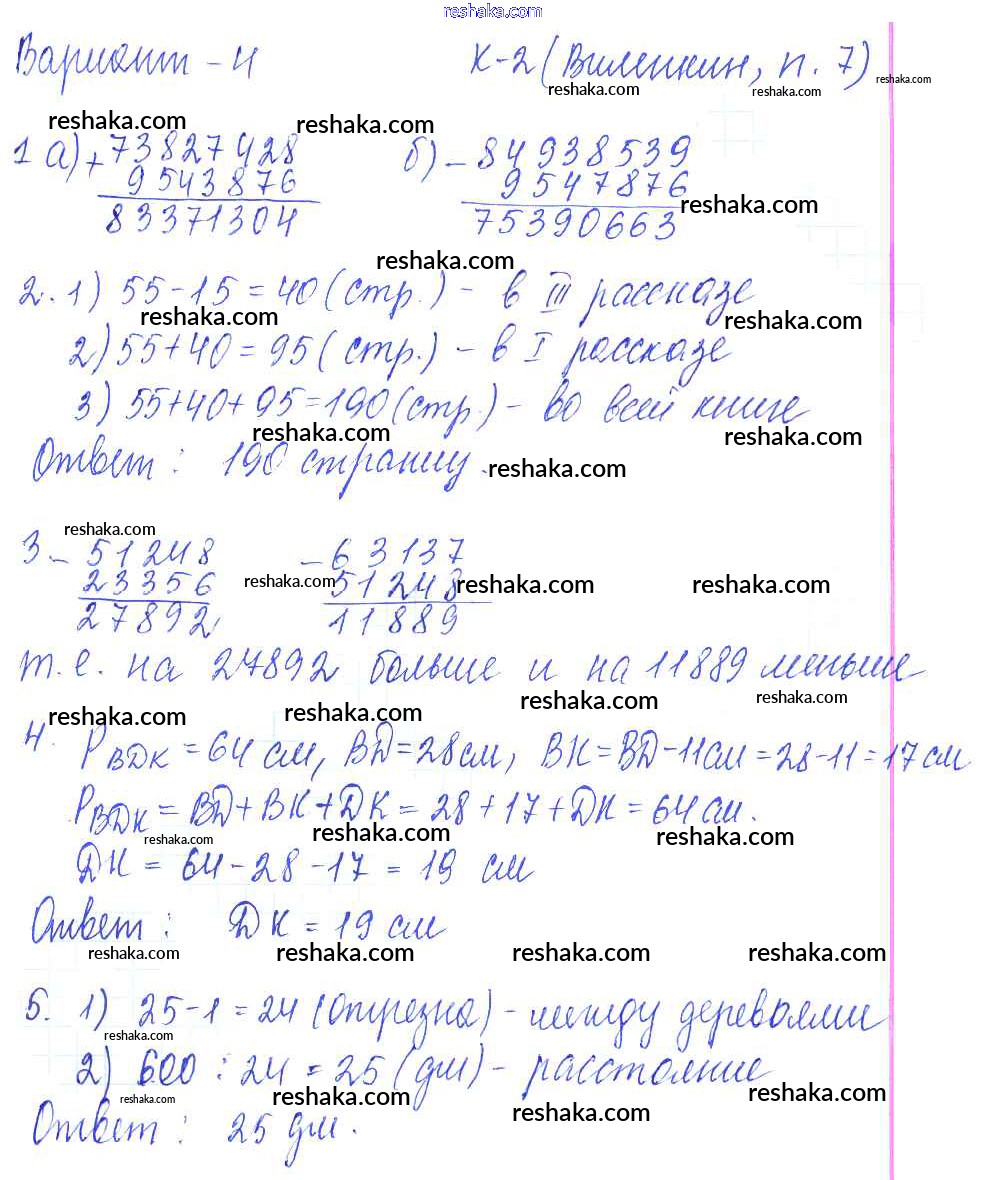 reshaka.com
Вариант - 4 К-2 (Виленкин, п. 7)
reshaka.com reshaka.com reshaka.com
reshaka.com reshaka.com
1 а) + 73827428 б) - 84938539
9543876 9547876
reshaka.com
83371304 75390663
reshaka.com
2. 1) 55-15=40 (стр.) - в III рассказе
reshaka.com reshaka.com
2) 55+40=95 (стр.) - в I рассказе
3) 55+40+95=190 (стр.) - во всей книге
reshaka.com reshaka.com
Ответ: 190 страниц.
reshaka.com
reshaka.com
3 - 51248 - 63137
23356 51248
reshaka.com reshaka.com reshaka.com
27892 11889
т.е. на 27892 больше и на 11889 меньше
reshaka.com reshaka.com reshaka.com reshaka.com
4. PВДК = 64 см, ВД=28см, ВК=ВД-11см=28-11=17 см
PВДК = ВД+ВК+ДК = 28+17+ДК = 64 см.
reshaka.com reshaka.com reshaka.com
ДК = 64-28-17 = 19 см
Ответ: ДК = 19 см
reshaka.com reshaka.com reshaka.com reshaka.com
5. 1) 25-1=24 (Отрезка) - между деревьями
reshaka.com
2) 600 : 24 = 25 (дм) - расстояние
reshaka.com reshaka.com reshaka.com reshaka.com
Ответ: 25 дм.